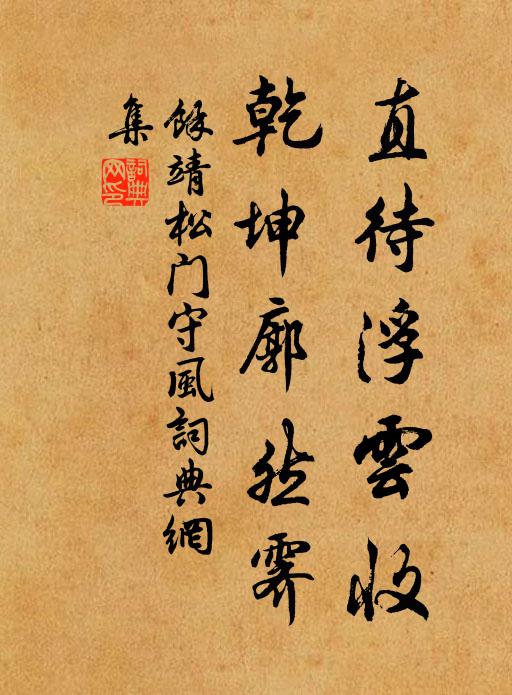 直待浮雲收
乾坤廓然霽
餘靖松门守風詞典網
集
詞典
网印